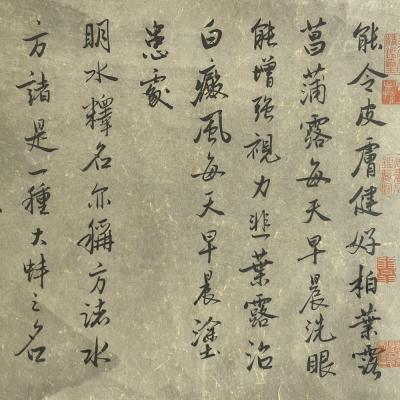 能令皮膚健好柏葉露
菖蒲露每天早晨洗眼
能增强視力韭葉露治
白癜風每天早晨塗
患處
明水釋名亦稱方诸水
方諸是一種大蚌之名